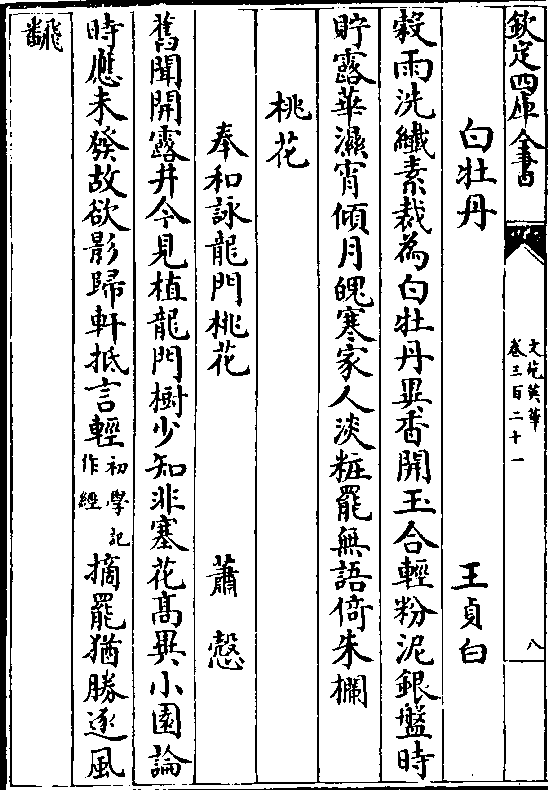 欽定四庫全書
文苑英華
卷三百二十一
八
白牡丹
王貞白
糓雨洗纎素裁為白牡丹異香開玉合輕粉泥銀盤時
貯露華濕宵傾月魄寒家人淡粧罷無語倚朱欄
桃花
奉和詠龍門桃花
蕭慤
舊聞開露井今見植龍門樹少知非塞花髙異小園論
時應未發故欲影歸軒抵言輕初學記作經摘罷猶勝逐風
飛翻